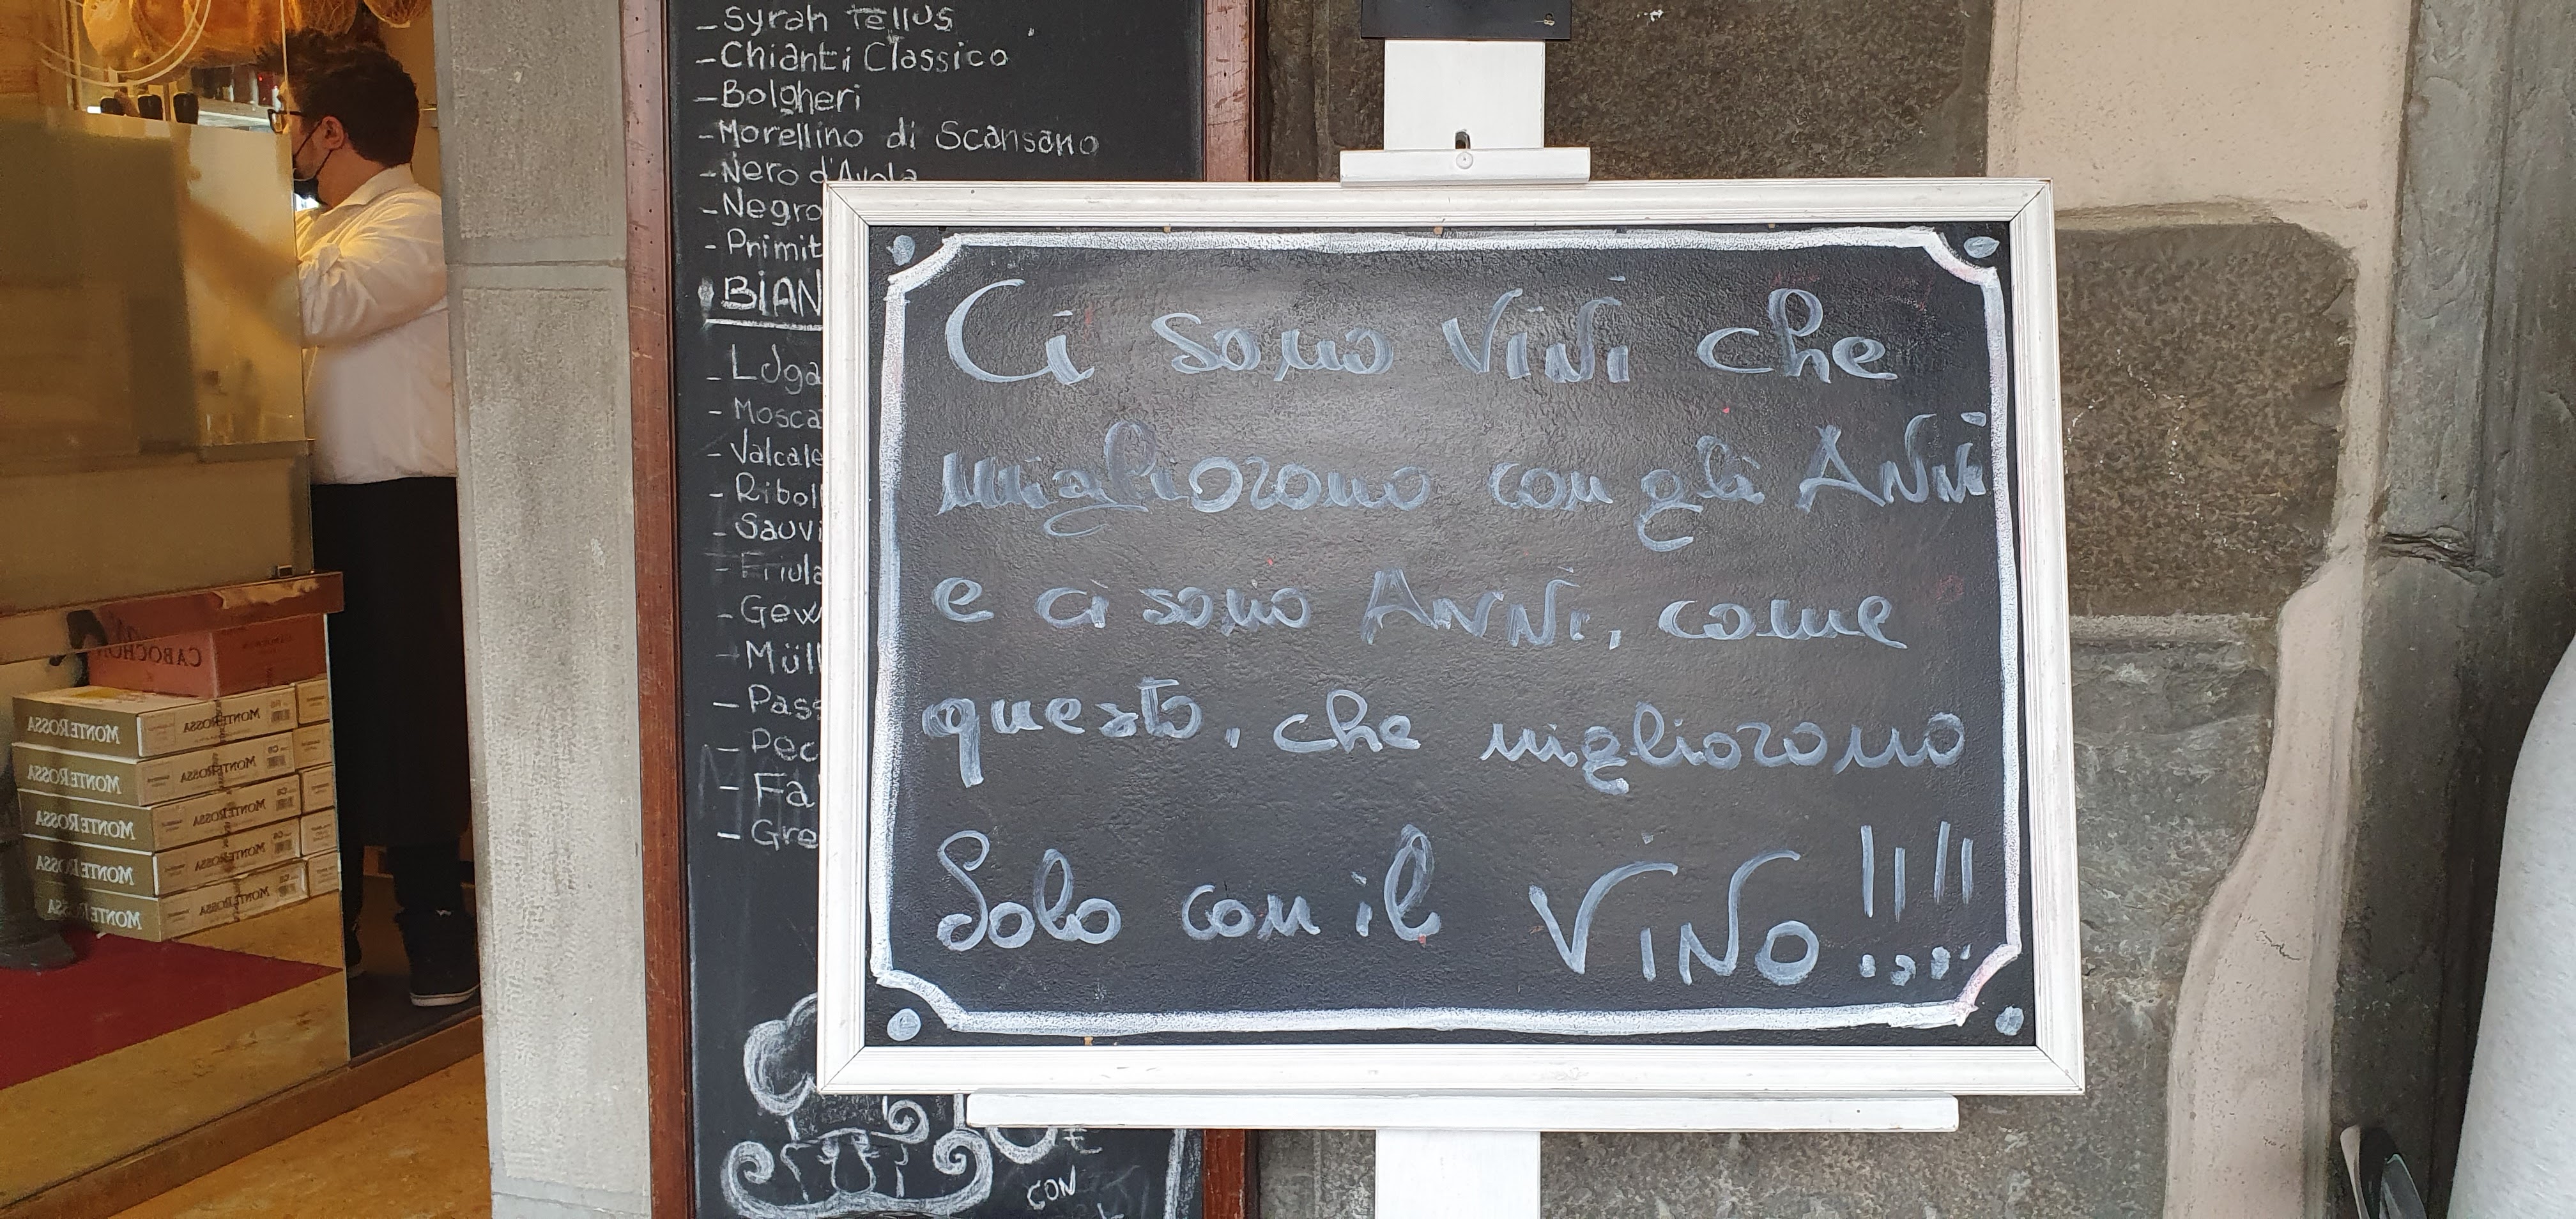 -Syrah Tellus
-Chianti Classico
-Bolgheri
-Morellino di Scansano
-Nero d'Avola
-Negro
-Primit
BIAN
-Luga
-Mosca
-Valcale
-Riboll
-Sauvi
-Friula
-Gew
-Müll
-Pass
-Pec
-Fa
-Gre
CON
Ci sono ViNi che
migliorono con gli ANNi
e ci sono ANNi, come
questo, che migliorono
Solo con il ViNO!!!!
CABOCHON
MONTE ROSSA MONTE ROSSA
MONTE ROSSA MONTE ROSSA
MONTE ROSSA MONTE ROSSA
MONTE ROSSA MONTE ROSSA
MONTE ROSSA MONTE ROSSA